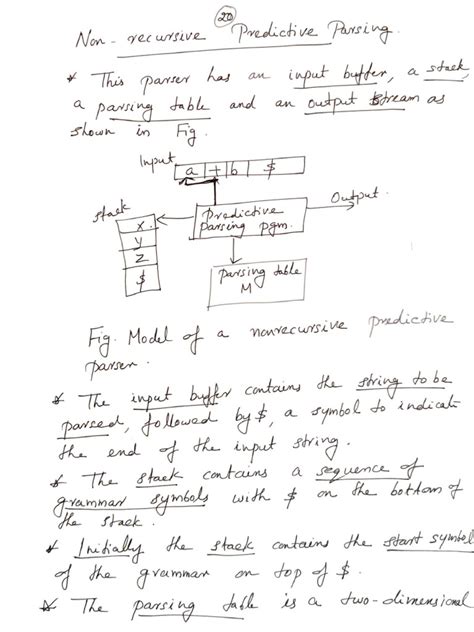 20
Non-recursive Predictive Parsing.
* This parser has an input buffer, a stack,
a parsing table and an output stream as
shown in Fig.
Input
a + b $
Stack
X
Y
Z
$
Predictive
parsing pgm.
Output
Parsing table
M
Fig. Model of a nonrecursive predictive
parser.
* The input buffer contains the string to be
parsed, followed by $, a symbol to indicate
the end of the input string.
* The stack contains a sequence of
grammar symbols with $ on the bottom of
the stack.
* Initially the stack contains the start symbol
of the grammar on top of $.
* The parsing table is a two-dimensional